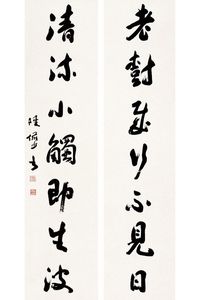 老樹成行不見日
清流小觸即生波
陸儼少